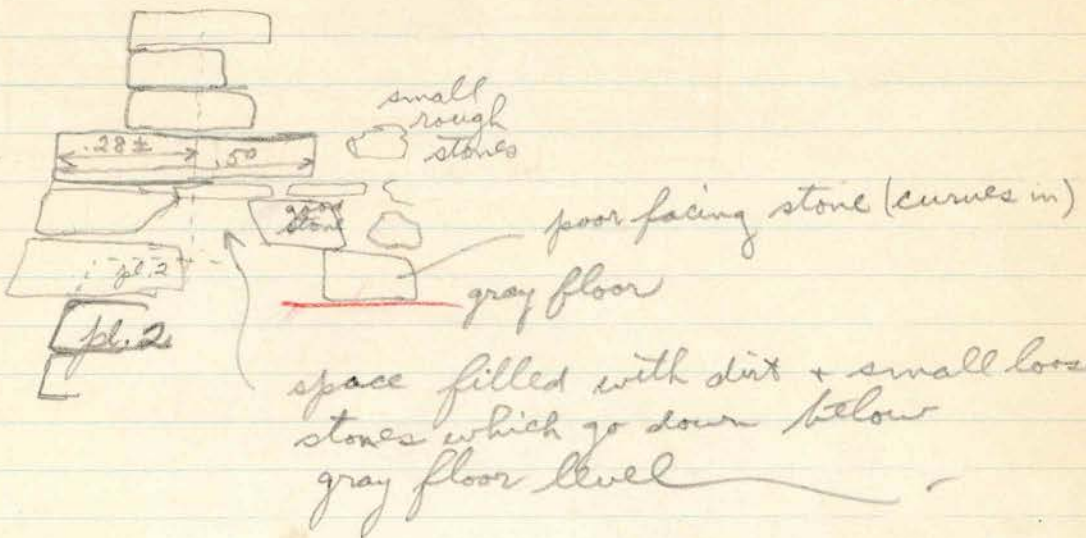 small
rough
stones
.28 ± .50
good
stone
poor facing stone (curves in)
pl. 2
gray floor
pl. 2
space filled with dirt + small loos
stones which go down below
gray floor level